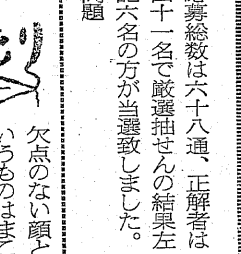 応募総数は六十八通、正解者は
四十一名で厳選抽せんの結果左
記六名の方が当選致しました。
問題
欠点のない顔と
いうものはまて